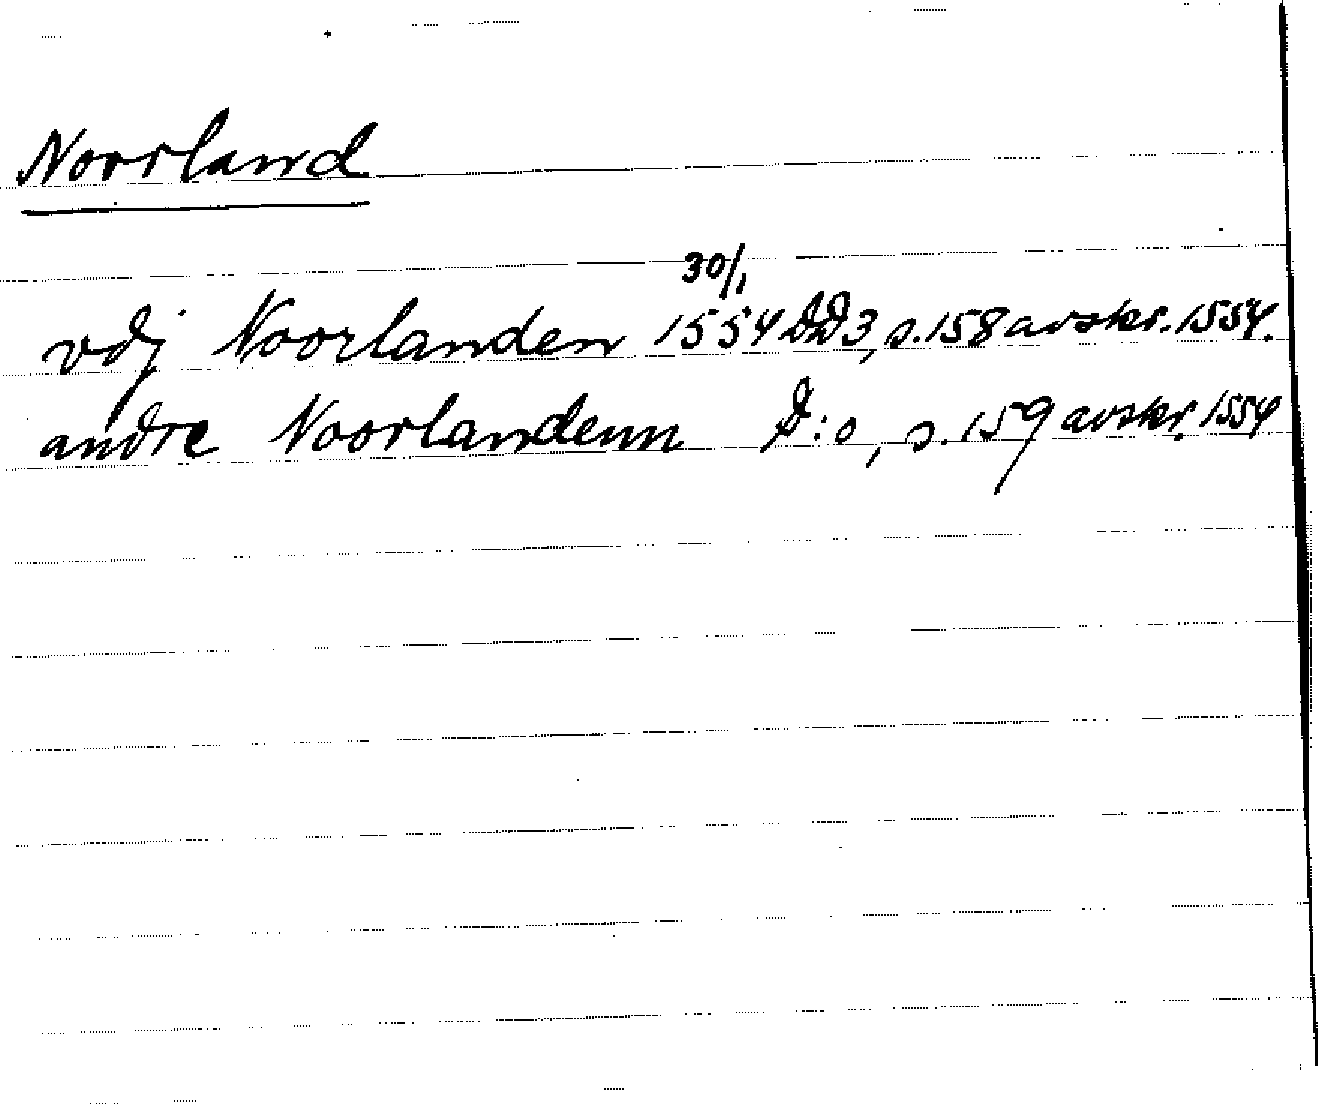 Norrland
30/1
vdj Noorlanden 1554 DD3, s. 158 avskr. 1554.
andre Noorlandenn D:o, s. 159 avskr. 1554